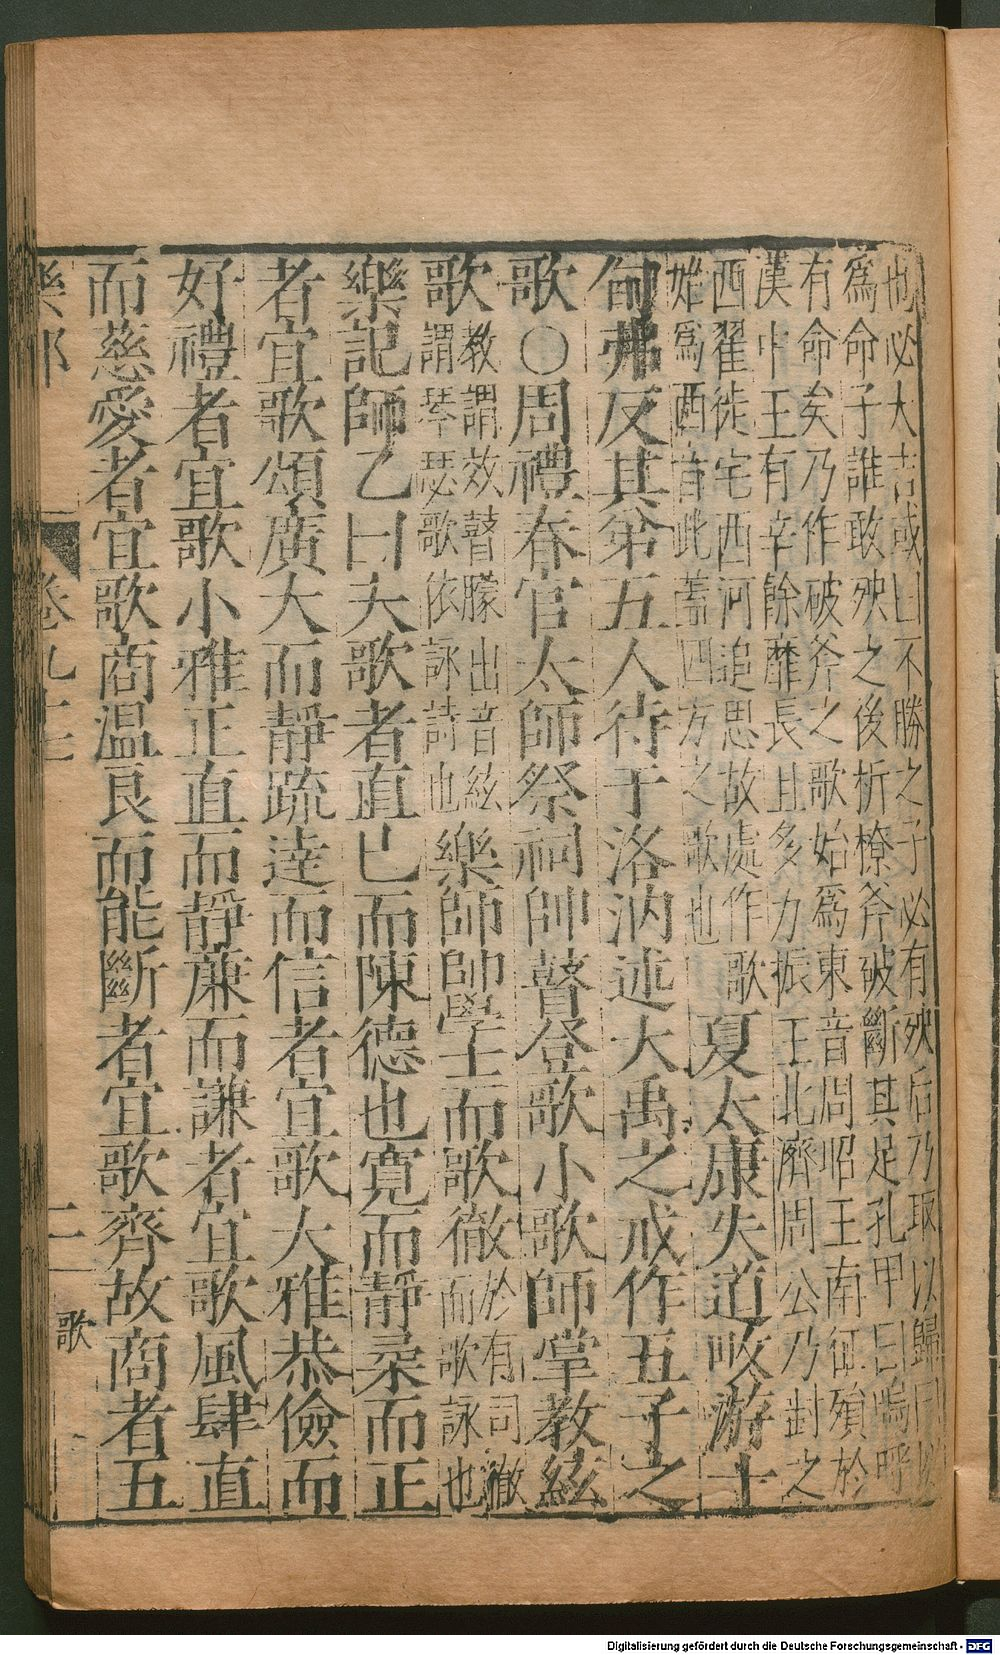 也必大吉或曰不勝之子必有殃后乃取以歸曰以
爲命子誰敢殃之後析橑斧破斷其足孔甲曰嗚呼
有命矣乃作破斧之歌始爲東音周昭王南征殞於
漢中王有辛餘靡長且多力振王北濟周公乃封之
西翟徙宅西河追思故處作歌
始爲西音此蓋四方之歌也
夏太康失道畋游十
旬弗反其第五人待于洛汭述大禹之戒作五子之
歌〇周禮春官太師祭祀帥瞽登歌小歌師掌教絃
歌
教謂效瞽矇出音絃
謂琴瑟歌依詠詩也
樂師帥學士而歌徹
於有司徹
而歌詠也
樂記師乙曰夫歌者直已而陳德也寬而靜柔而正
者宜歌頌廣大而靜疏達而信者宜歌大雅恭儉而
好禮者宜歌小雅正直而靜廉而謙者宜歌風肆直
而慈愛者宜歌商溫良而能斷者宜歌齊故商者五
樂部
卷九十七
二
歌
Digitalisierung gefördert durch die Deutsche Forschungsgemeinschaft - DFG